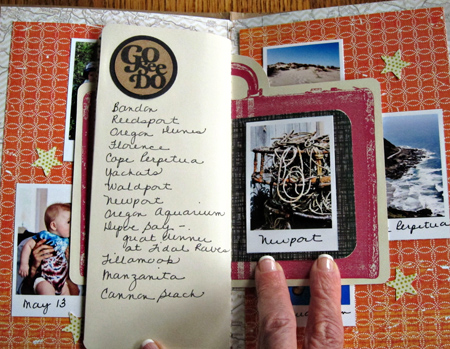 GO
SEE
DO
Bandon
Reedsport
Oregon Dunes
Florence
Cape Perpetua
Yachats
Waldport
Newport
Oregon Aquarium
Depoe Bay -
great dinner
at Tidal Raves
Tillamook
Manzanita
Cannon Beach
May 13
Newport
Perpetua